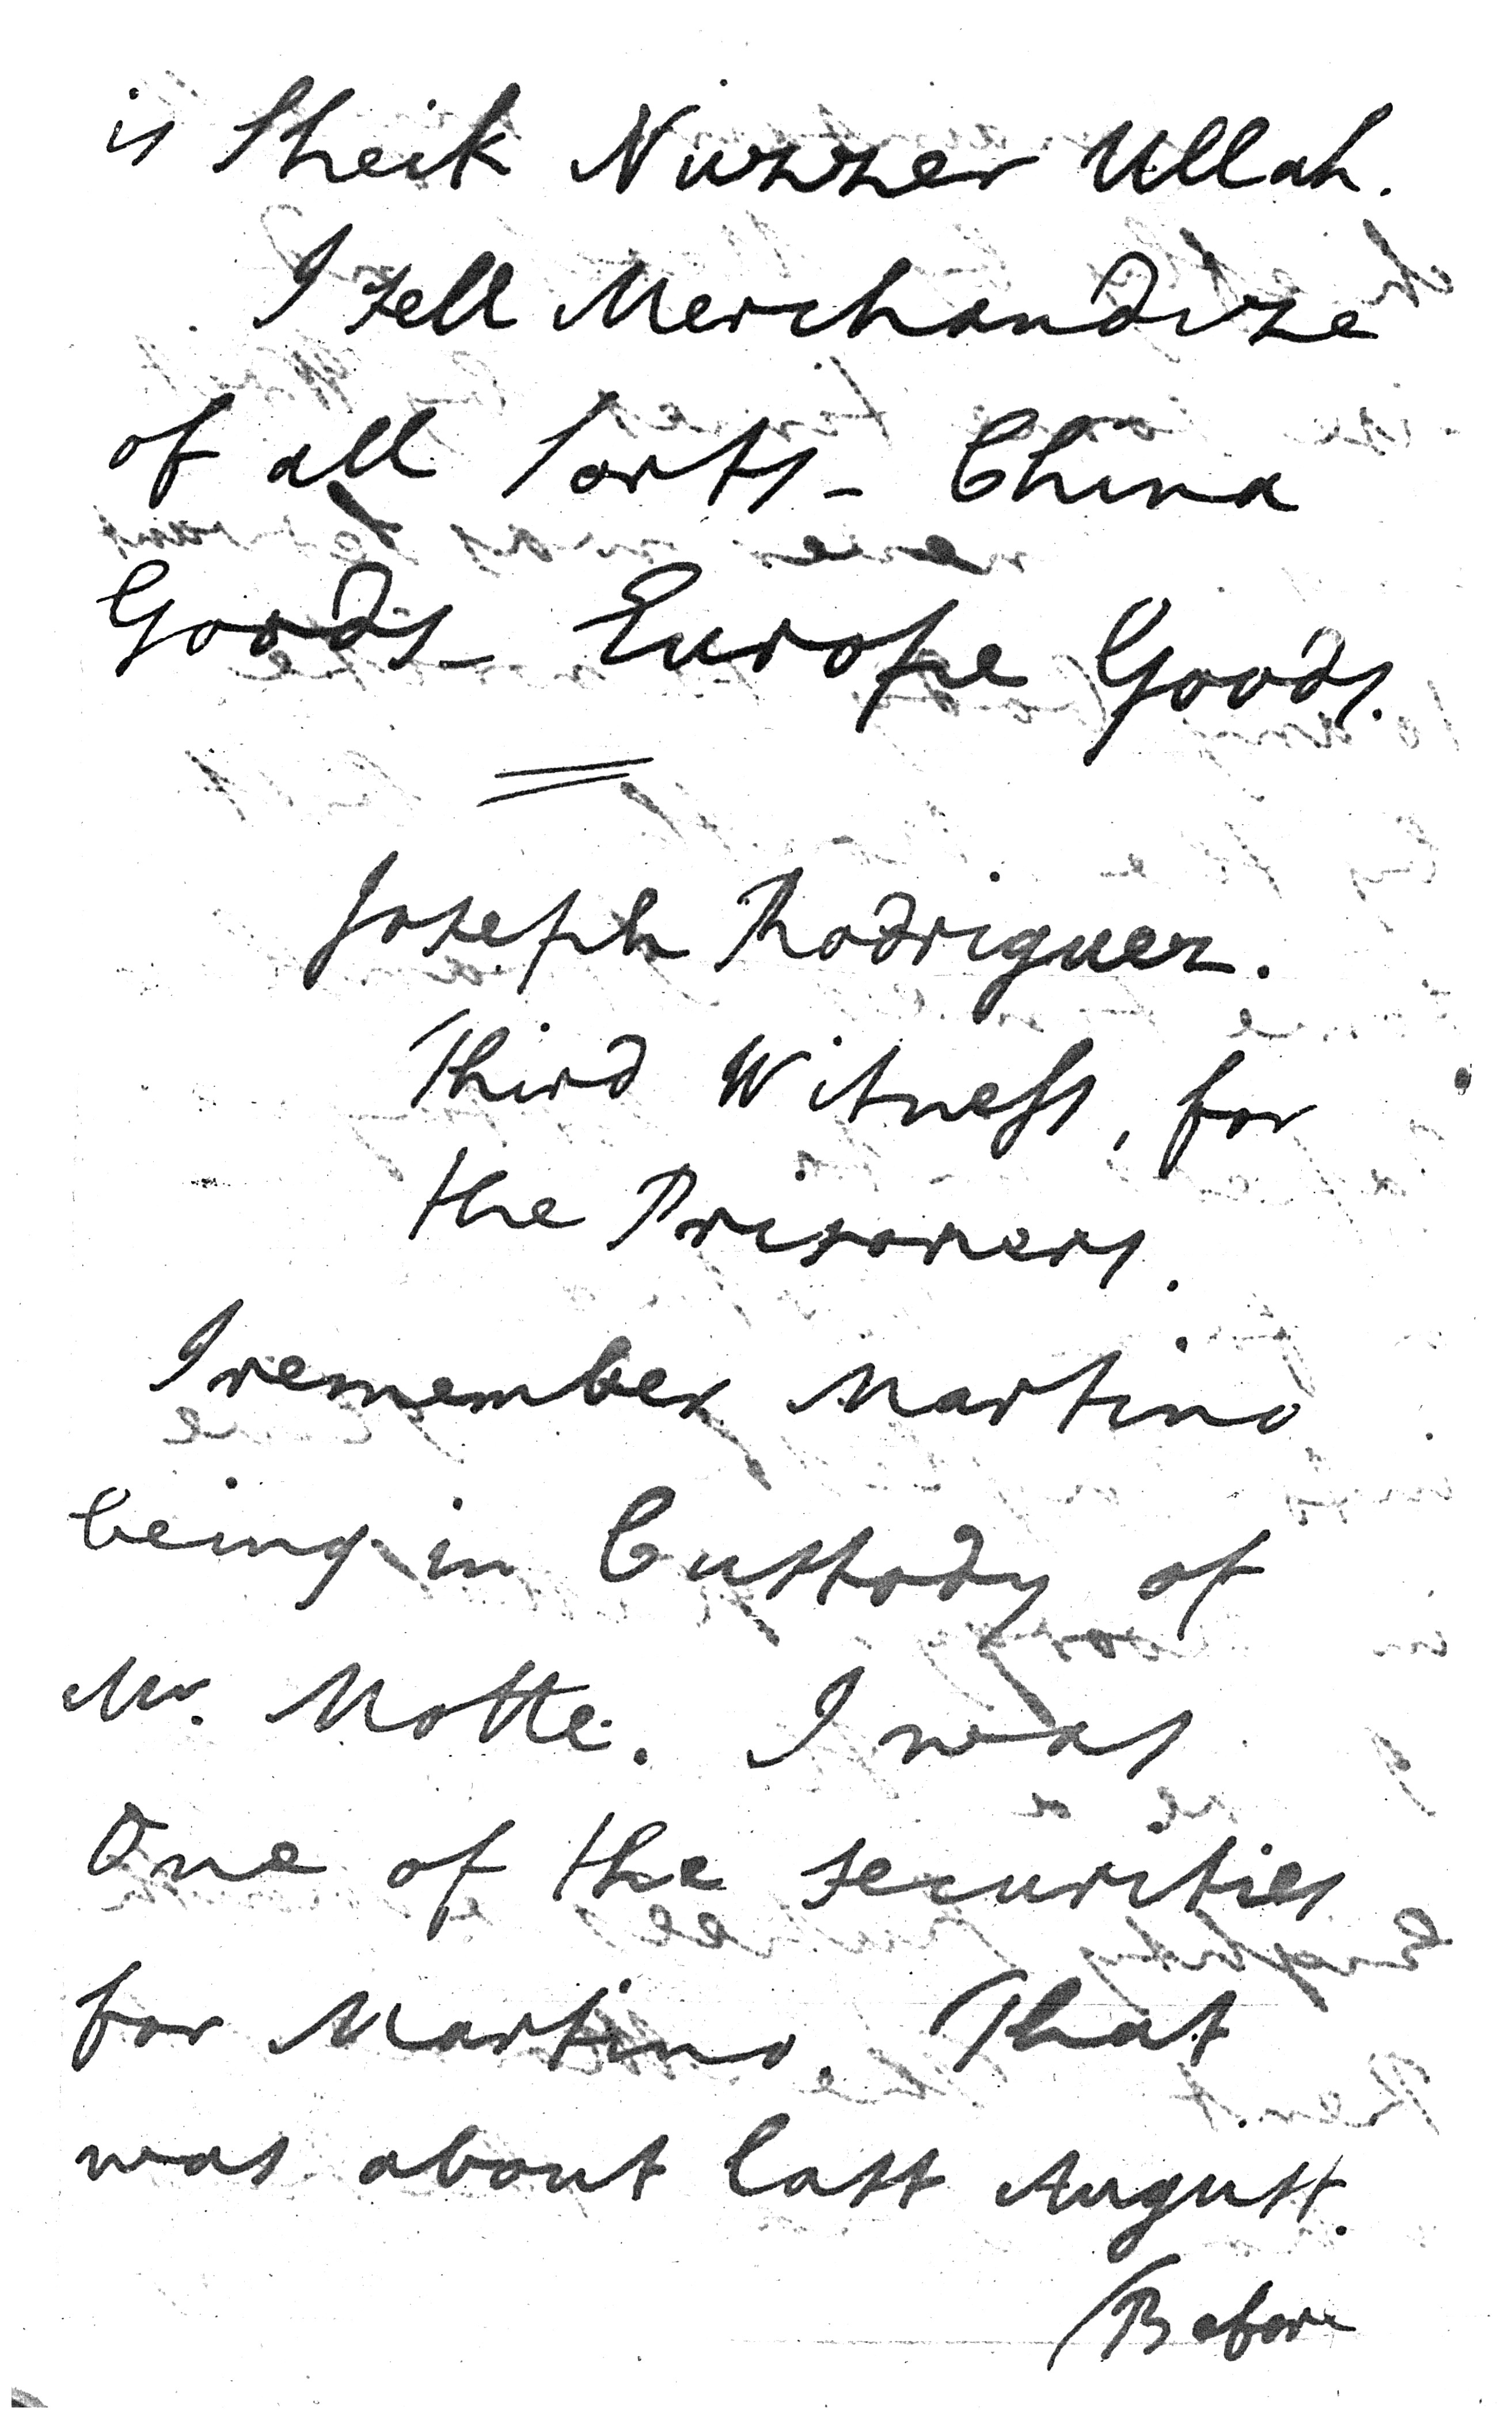 is Sheik Nuzzer Ullah.
I sell Merchandize
of all sorts - China
Goods - Europe Goods.
Joseph Rodriguez.
Third Witness, for
the Prisoners.
I remember Martino
being in Custody of
Mr. Motte. I was
One of the securities
for Martino. That
was about last August.
Before